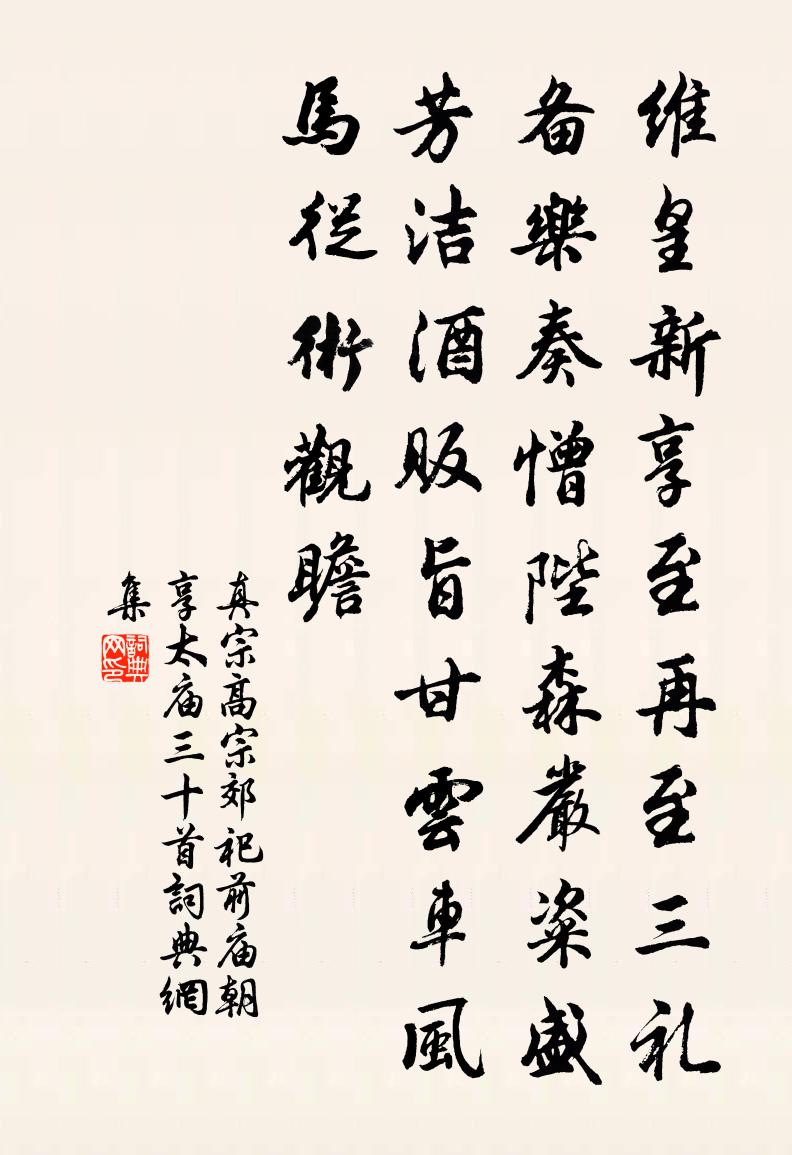 维皇新享至再至三礼
备樂奏憎陛森嚴粢盛
芳洁酒贩旨甘雲車風
馬從術觀瞻
真宗高宗郊祀前庙朝
享太庙三十首詞典網
集
詞典网印